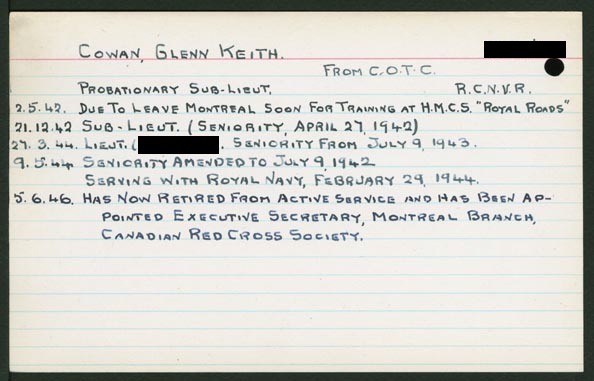 COWAN, GLENN KEITH.
FROM C.O.T.C.
PROBATIONARY SUB-LIEUT. R.C.N.V.R.
2.5.42. DUE TO LEAVE MONTREAL SOON FOR TRAINING AT H.M.C.S. "ROYAL ROADS"
21.12.42 SUB-LIEUT. (SENIORITY, APRIL 27, 1942)
27.3.44. LIEUT. ( . SENIORITY FROM JULY 9, 1943.
9.5.44. SENIORITY AMENDED TO JULY 9, 1942
SERVING WITH ROYAL NAVY, FEBRUARY 29, 1944.
5.6.46. HAS NOW RETIRED FROM ACTIVE SERVICE AND HAS BEEN AP-
POINTED EXECUTIVE SECRETARY, MONTREAL BRANCH,
CANADIAN RED CROSS SOCIETY.